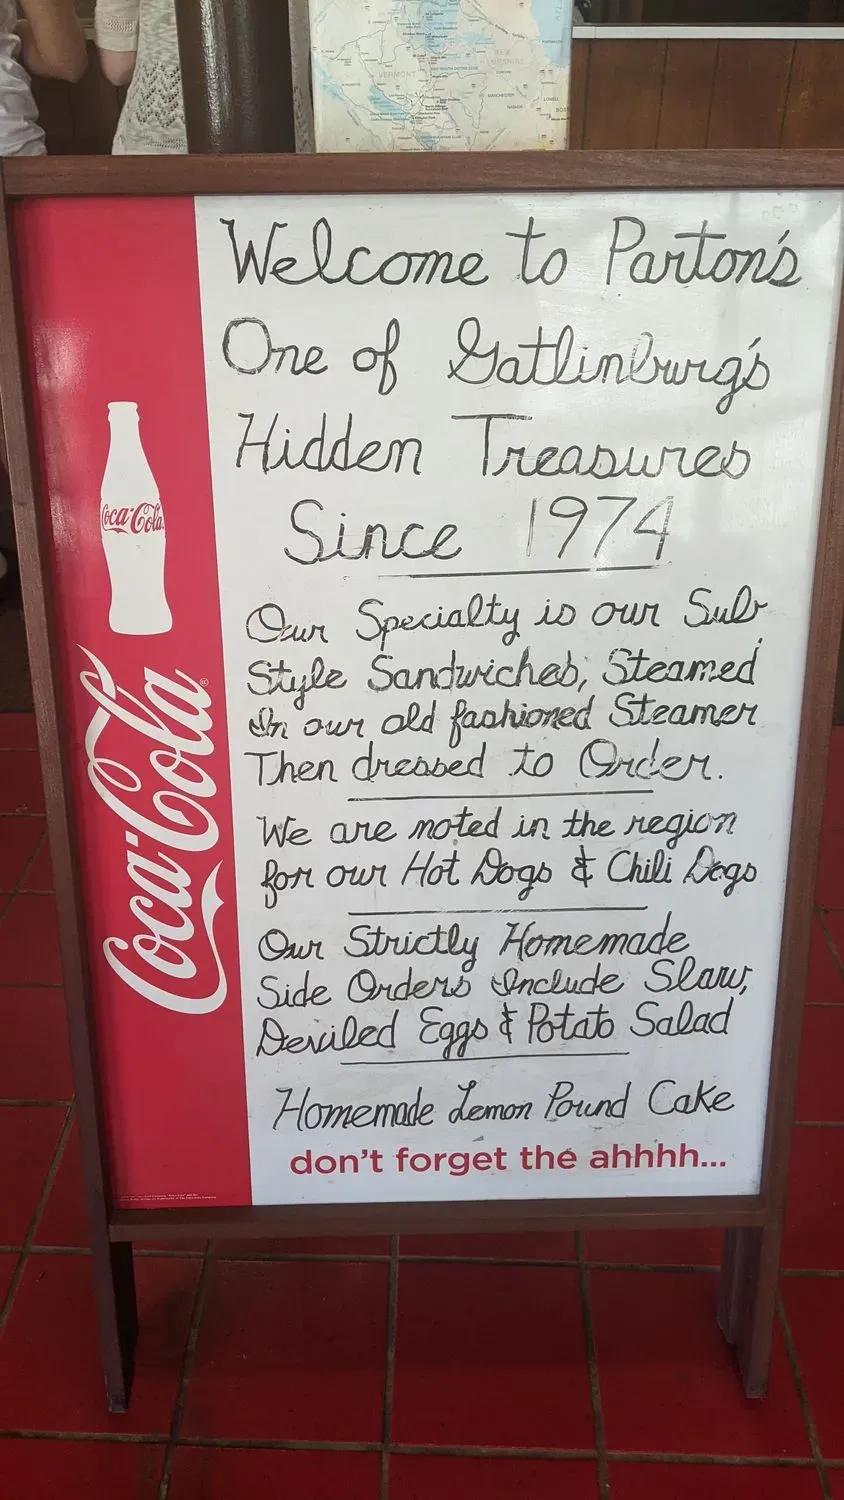 VERMONT
NEW HAMPSHIRE
MANCHESTER
NASHUA
LOWELL
Welcome to Parton's
One of Gatlinburg's
Hidden Treasures
Since 1974
Our Specialty is our Sub
Style Sandwiches, Steamed
In our old fashioned Steamer
Then dressed to Order.
We are noted in the region
for our Hot Dogs & Chili Dogs
Our Strictly Homemade
Side Orders Include Slaw,
Deviled Eggs & Potato Salad
Homemade Lemon Pound Cake
don't forget the ahhhh...
Coca-Cola
Coca-Cola®